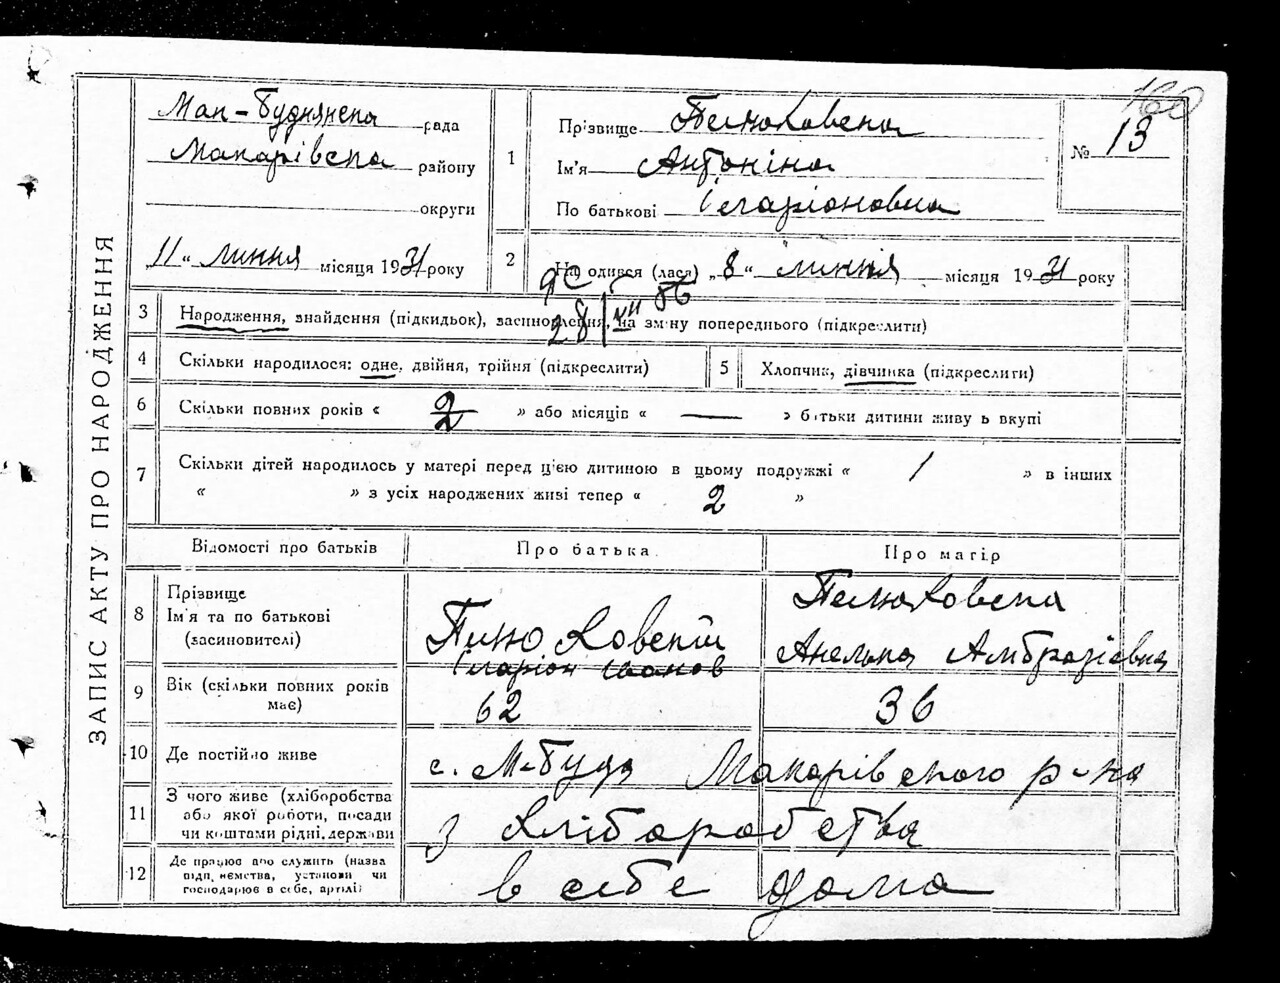 ЗАПИС АКТУ ПРО НАРОДЖЕННЯ
160
Мак-Буднянська рада
Макарівська району
округи
„11“ липня місяця 1931 року
1
Прізвище
Ім'я Антоніна
По батькові Іларіоновна
№ 13
2
Народився (лася) „8“ липня місяця 1931 року
3 Народження, знайдення (підкидьок), засиновлення, на зміну попереднього (підкреслити)
4 Скільки народилося: одне, двійня, трійня (підкреслити)
5 Хлопчик, дівчинка (підкреслити)
6 Скільки повних років « 2 » або місяців « — » батьки дитини живуть вкупі
7 Скільки дітей народилось у матері перед ц'єю дитиною в цьому подружжі « 1 » в інших
« » з усіх народжених живі тепер « 2 »
Відомості про батьків
Про батька
Про матір
8 Прізвище
Ім'я та по батькові
(засиновителі)
Іларіон Іванов
Анелька Амбразіевна
9 Вік (скільки повних років має)
62
36
10 Де постійно живе
с. М-Буда Макарівского р-на
11 З чого живе (хліборобства
або якої роботи, посади
чи коштами рідні, держави
З хліборобства
12 Де працює або служить (назва
підприємства, установи чи
господарює в себе, артілі)
в себе дома